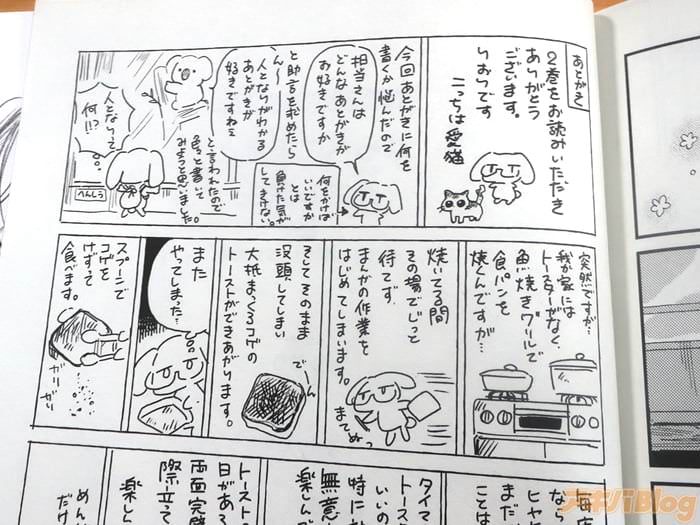 あとがき
2巻をお読みいただき
ありがとう
ございます。
りおりです
こっちは愛猫
今回あとがきに何を
書くか悩んだので
担当さんは
どんなあとがきが
お好きですか
何をかけば
いいですか
とは
負けた気が
してきけない。
と助言を求めたら
ん〜
人となりがわかる
あとがきが
好きですねぇ
と言われたので
色々と書いて
みようと思いました。
人となりって
何!?
へんしゅう
突然ですが…
我が家には
トースターがなく、
魚焼きグリルで
食パンを
焼くんですが…
焼いてる間
その場でじっと
待てず、
まんがの作業を
はじめてしまいます。
まてぬっ
そしてそのまま
没頭してしまい
大抵まっくろコゲの
トーストができあがります。
でん
また
やってしまった…
スプーンで
コゲを
けずって
食べます。
ガリ
ガリ
毎店
なら
ヒャ
まだ
ことは
タイマ
トース
いいの
特に
無意
楽しん
トースト
日がある
両面完璧
際立て
楽しん
めん
だけ
アキバBlog